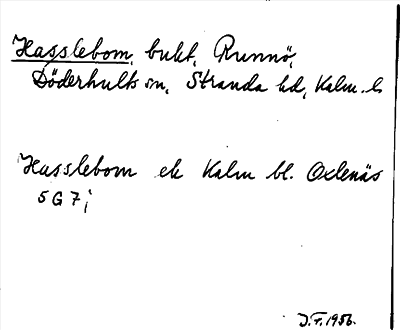 Hasslebom, bukt, Runnö,
Döderhults sn, Stranda hd, Kalm. l.
Hasslebom ek Kalm bl. Oxlenäs
5 G 7 i
J.F. 1956.